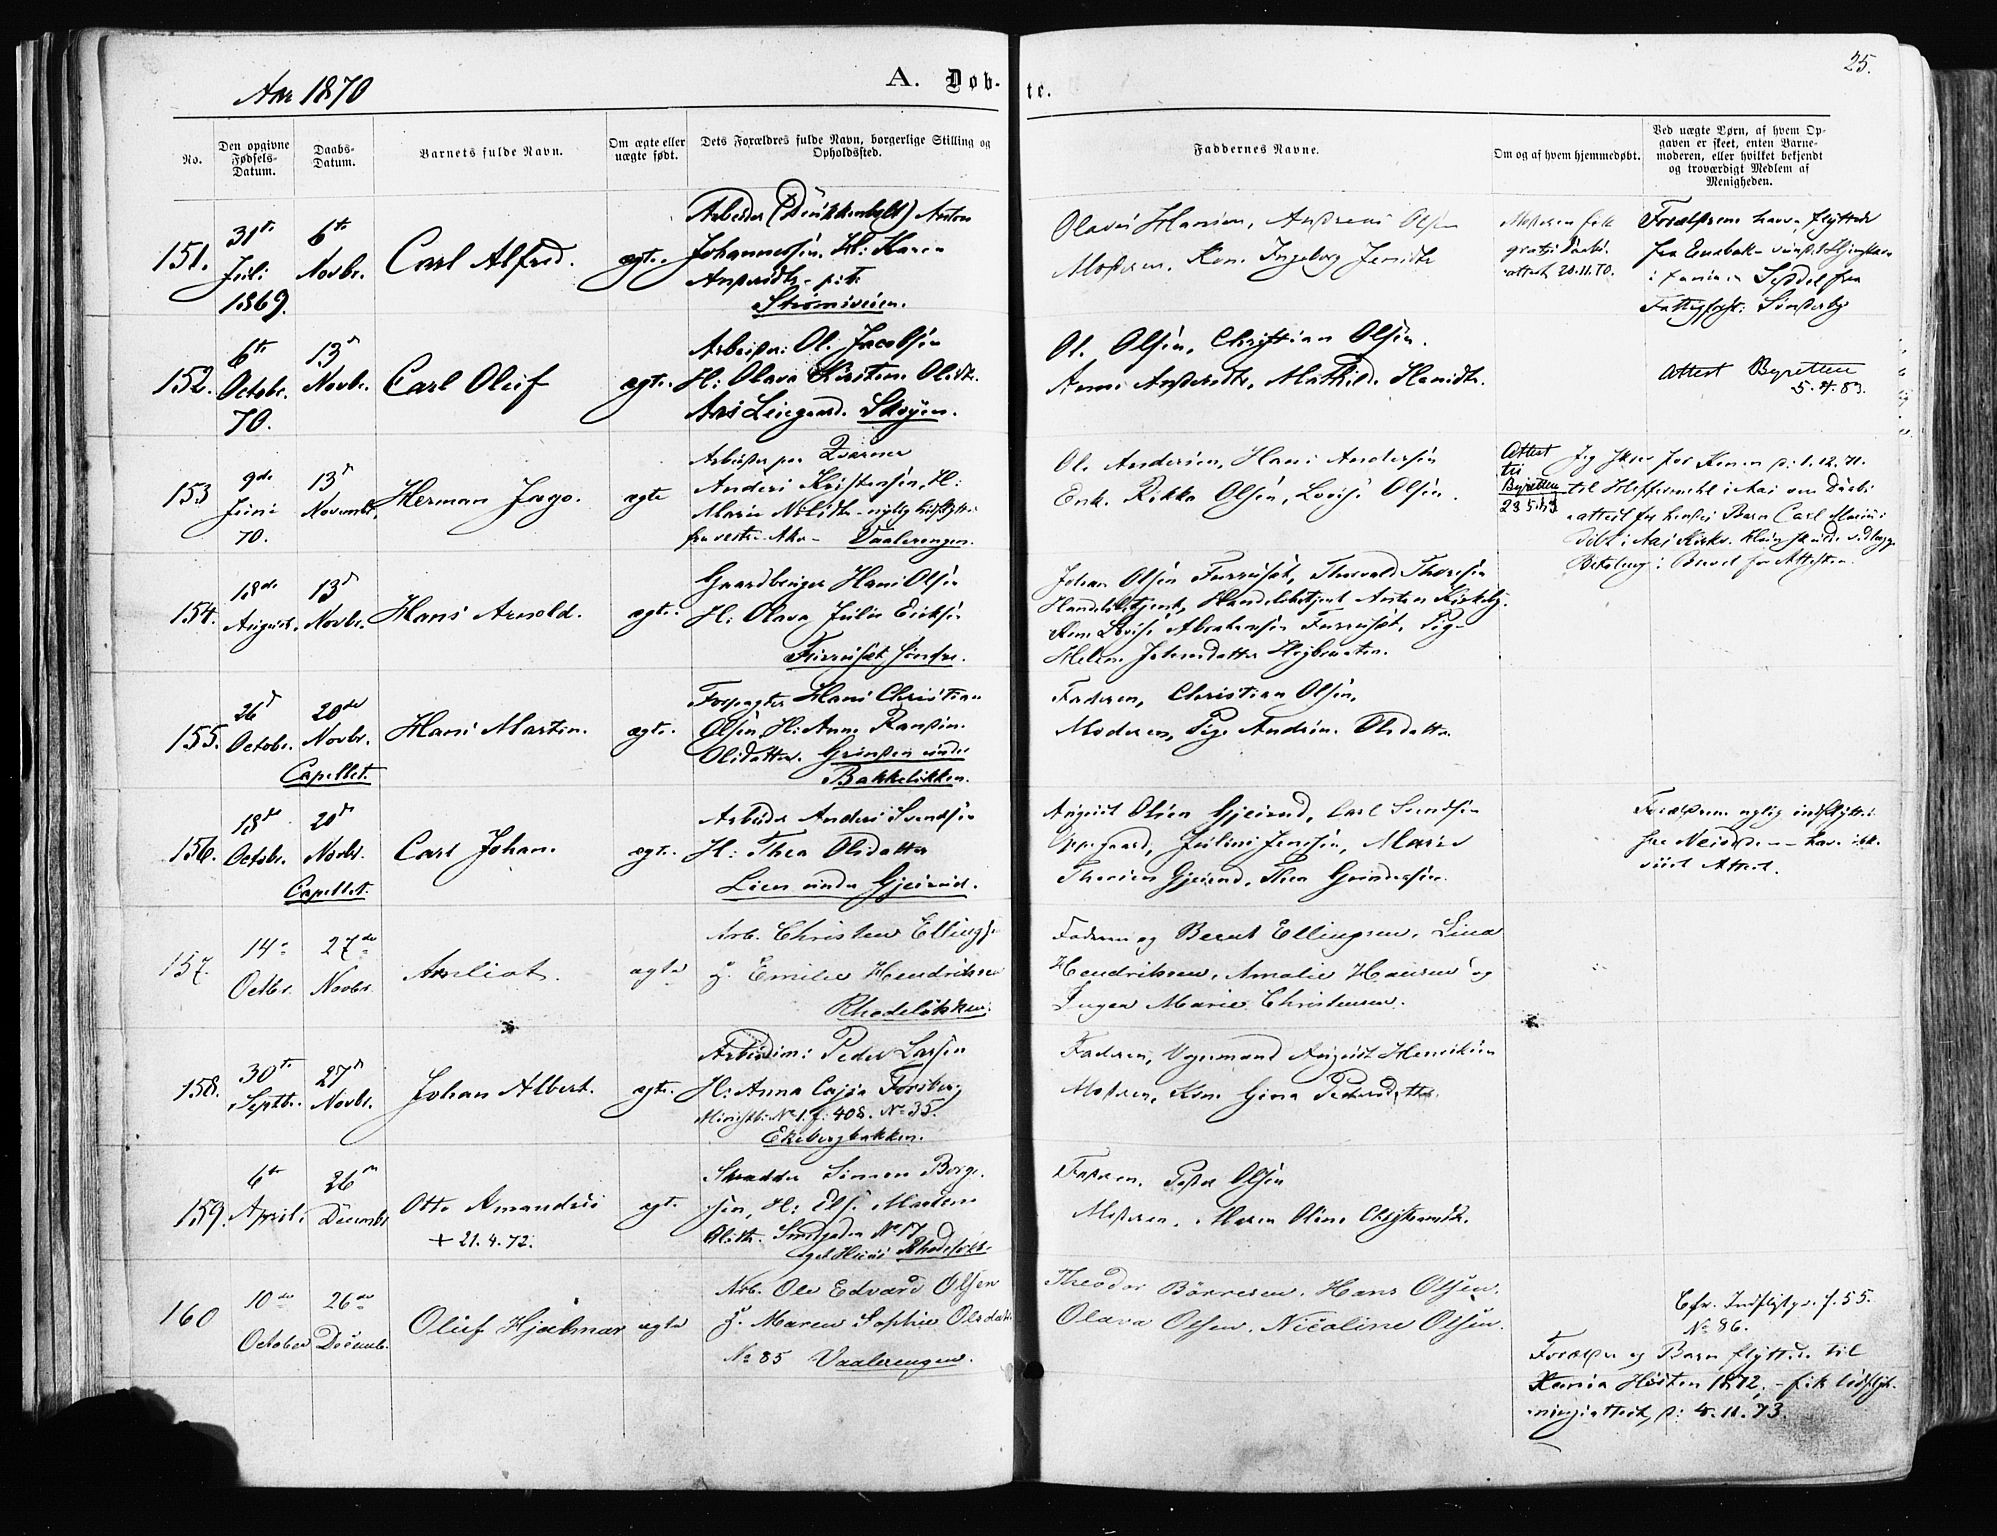 25.
Aar 1870
A. Døb-
te.
No.
Den opgivne Fødsels-Datum.
Daabs-Datum.
Barnets fulde Navn.
Om ægte eller uægte født.
Dets Forældres fulde Navn, borgerlige Stilling og Opholdssted.
Faddernes Navne.
Om og af hvem hjemmedøbt.
Ved uægte Børn, af hvem Op-
gaven er skeet, enten Barne-
moderen, eller hvilket bekjendt
og troværdigt Medlem af
Menigheden.
151.
31te
Juli
1869.
6te
Novbr.
Carl Alfred.
ægte.
Arbeider Anton
Johannessen. H: Karen
Strømsveien.
Olaus Hansen, Andreas Olsen
Moderen. Kone Ingeborg Jensdtr
Moderen fik
gratis Daabs-
attest 20.11.70.
Forældrene have flyttede
fra Enebak
Seddel fra
152.
6te
Octobr.
70.
13de
Novbr.
Carl Oluf
ægte.
Arbeider Ole Jacobsen
H: Olava Kirstine Olsdtr.
Skøyen.
Ole Olsen, Christian Olsen.
Anne Andersdtr, Mathilde Hansdtr.
Attest Byretten
5.4.83.
153
9de
Juni
70.
13de
Novembr.
Herman Jago.
ægte
Anders Kristensen, H:
Marie Nilsdtr
fra vestre Aker - Vaalerengen.
Ole Andersen, Hans Andersen
Enke Rikka Olsen, Lovise Olsen.
Attest
til
Byretten
Jeg skrev for Konen
attest for hendes Barn Carl
Betaling i Brevet for Attesten.
154.
18de
August.
13de
Novbr.
Hans Arnold.
ægte.
Gaardbruger Hans Olsen
H: Olava Julie Eriksen
Furuset søndre.
Johan Olsen Furuset, Thorvald Thoresen
Handelsbetjent, Handelsbetjent Anton Kirkeby.
Kone Lovise Abrahamsen Furuset, Pige
Helene Johnsdatter Høybraaten.
155.
26de
Octobr.
20de
Novbr.
Capellet.
Hans Martin.
ægte.
Forpagter Hans Christian
Olsen, H: Anne Randine
Olsdatter. Grinden under
Bakkeløkken.
Faderen, Christian Olsen,
Moderen, Pige Andrine Olsdatter.
156.
18de
Octobr.
20de
Novbr.
Capellet.
Carl Johan.
ægte.
Arbeider Anders Svendsen
H: Thea Olsdatter
Lien under Gjeirud.
August Olsen Gjeirud, Carl Svendsen
Oppegaard, Juline Jensen, Maren
Gjeirud, Thea Gundersen.
Forældrene nylig indflyttede
fra - have ikke
viist Attest.
157.
14de
Octbr.
27de
Novbr.
ægte
Arb. Christen Ellingsen
g. Emilie Hendriksen
Rhodeløkken.
Faderen og Bernt Ellingsen, Lina
Hendriksen, Amalie Hansen og
Inger Marie Christensen.
158.
30te
Septbr.
27de
Novbr.
Johan Albert.
ægte.
Arbeidsm: Peder Larsen
H: Anna Cajsa Forsberg
Ministb: No 1, f: 408. No 35.
Ekebergbakken.
Faderen, Vognmand August Henriksen
Moderen, Kone Gina Pedersdatter.
159.
6te
April.
26de
Decembr
Otto Amandus
+ 21.4.72.
ægte.
Skrædder Simon Borge-
sen, H: Else Marie
Olsdtr. No 17
eget Huus Rhodeløkk.
Faderen. Peder Olsen
Moderen. Maren Oline Christiansdtr.
160
10de
October
26de
Decemb.
Oluf Hjalmar
ægte
Arb. Ole Edvard Olsen
g. Maren Sophie Olsdatter
No 85 Vaalerengen.
Theodor Børresen, Hans Olsen.
Olava Olsen, Nicoline Olsen.
Cfr. Indflyttr. f. 55.
No 86.
Forældre og Barn flyttede til
Høsten 1872, - fik Udflyt-
ningsattest 4.11.73.